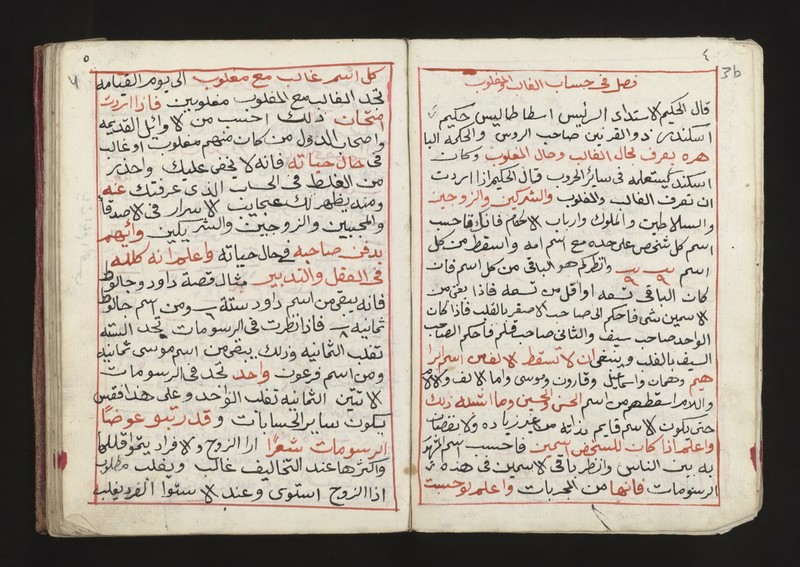 ٤
3b
فصل في حساب الغالب والمغلوب
قال الحكيم الاستداد الرئيس اسطاطاليس حكيم
اسكندر ذو القرنين صاحب الروس والحكمة البا
هره يعرف لحال الغالب وحال المغلوب وكان
اسكندر يستعمله في ساير الحروب قال الحكيم اذا اردت
ان تعرف الغالب والمغلوب والشركين والزوجين
والسلاطين والملوك وارباب الاحكام فاذا احسب
اسم كل شخص على حده مع اسم امه واسقط من كل
اسم ٩ ٩ وانظر كم هو الباقي من كل اسم فان
كان الباقي تسعه او اقل من تسعه فاذا بقي من
الاسمين شي فاحكم الى صاحب الاصغر بالغلب فاذا كان
الواحد صاحب سيف والثاني صاحب قلم فاحكم الصاحب
السيف بالغلب وينبغي ان لا تسقط الالف من اسم ابرا
هيم وهمان واسماعيل وقارون وموسى واما الالف والام
واللام اسقطهم من اسم الحسن والحسين وما اشبه ذلك
حتى يكون الاسم قايم بذاته من غير زياده ولا نقصان
واعلم اذا كان للشخص اسمين فاحسب اسم الشهر
به بين الناس وانظر باقي الاسمين في هذه
الرسومات فانها من المجربات واعلم لو حسبت
٥
كل اسم غالب مع مغلوب الى يوم القيامه
تجد الغالب مع المغلوب مغلوبين فاذا اردت
امتحان ذلك احسب من الاوايل القديمه
واصحاب الدول من كان منهم مغلوب او غالب
في حال حياته فانه لا يخفى عليك واحذر
من الغلط في الحساب الذي عرفتك عنه
ومنه يظهر لك عجايب الاسرار في الاصدقا
والمحبين والزوجين والشريكين وايهم
يدفن صاحبه في حال حياته واعلم انه كله
في العقل والتدبير مثال قصة داود وجالوط
فانه يبقى من اسم داود ستة ومن اسم جالوط
ثمانيه ٨ فاذا نظرت في الرسومات تجد السته
تغلب الثمانيه وذلك يبقى من اسم موسى ثمانيه
ومن اسم فرعون واحد تجد في الرسومات
الاثنين الثمانيه تغلب الواحد وعلى هذا فقس
يكون ساير الحسابات وقد رتبو عوضا
الرسومات شعرا ارا الزوج والافراد يسموا اقلها
واكثرها عند التخاليف غالب ويغلب مطلوب
اذا الزوج استوى وعند الاستوا الفرد يغلب